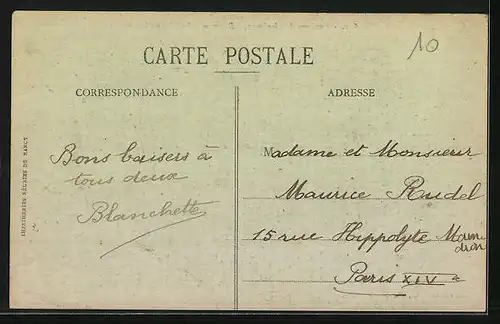 10
CARTE POSTALE
CORRESPONDANCE
ADRESSE
Bons baisers à
tous deux
Blanchette
Madame et Monsieur
Maurice Rudel
15 rue Hippolyte Main
dron
Paris XIVe
IMPRIMERIES RÉUNIES DE NANCY